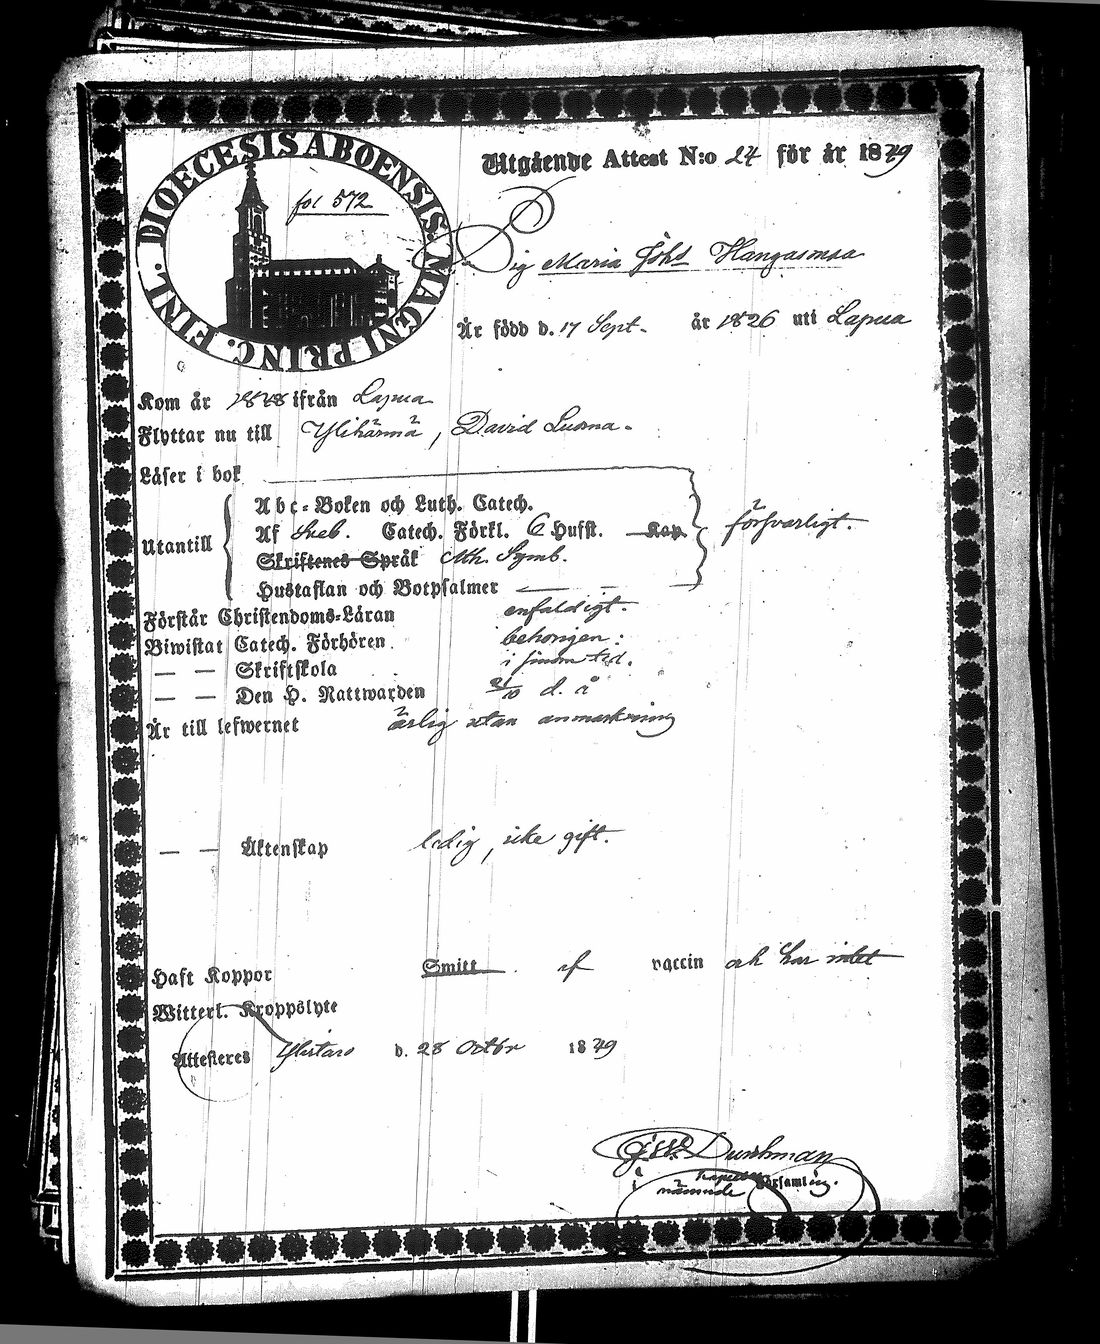 DIOECESIS ABOENSIS. MAGNI PRINC. FINL.
fol 572
Utgående Attest N:o 24 för år 1879
Pig Maria Johs Hangasmaa
Är född d. 17 Sept. år 1826 uti Lapua
Kom år ifrån Lapua
Flyttar nu till Ylihärmä, David Luoma.
Läser i bok
Abc-Boken och Luth. Catech.
Utantill
Af Sveb. Catech. Förkl. 6 Hufst. Kap. försvarligt.
Skriftenes Språk Ath. Symb.
Hustaflan och Botpsalmer
Förstår Christendoms-Läran enfaldigt.
Biwistat Catech. Förhören behörigen:
— — Skriftskola i sinom tid.
— — Den H. Nattwarden d. å
Är till lefwernet ärlig utan anmärkning
— — Äktenskap ledig, icke gift.
Haft Koppor Smitt af vaccin och har intet
Witterl. Kroppslyte
Attesteres Ylistaro d. 28 Octbr 1879
Durchman
Kapellan
nämnde församling.